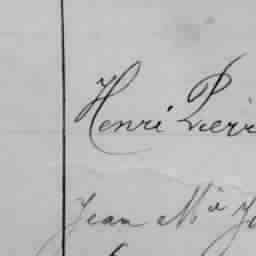 Henri Pierr
Jean Mia Jo